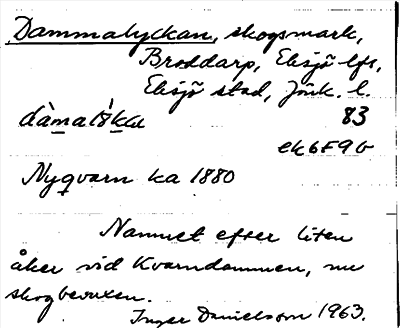 Dammalyckan, skogsmark,
Broddarp, Eksjö lfs,
Eksjö stad, Jönk. l.
83
ek6F9b
Nyqvarn ka 1880
Namnet efter liten
åker vid Kvarndammen, nu
skogbevuxen.
Inger Danielsson 1963.